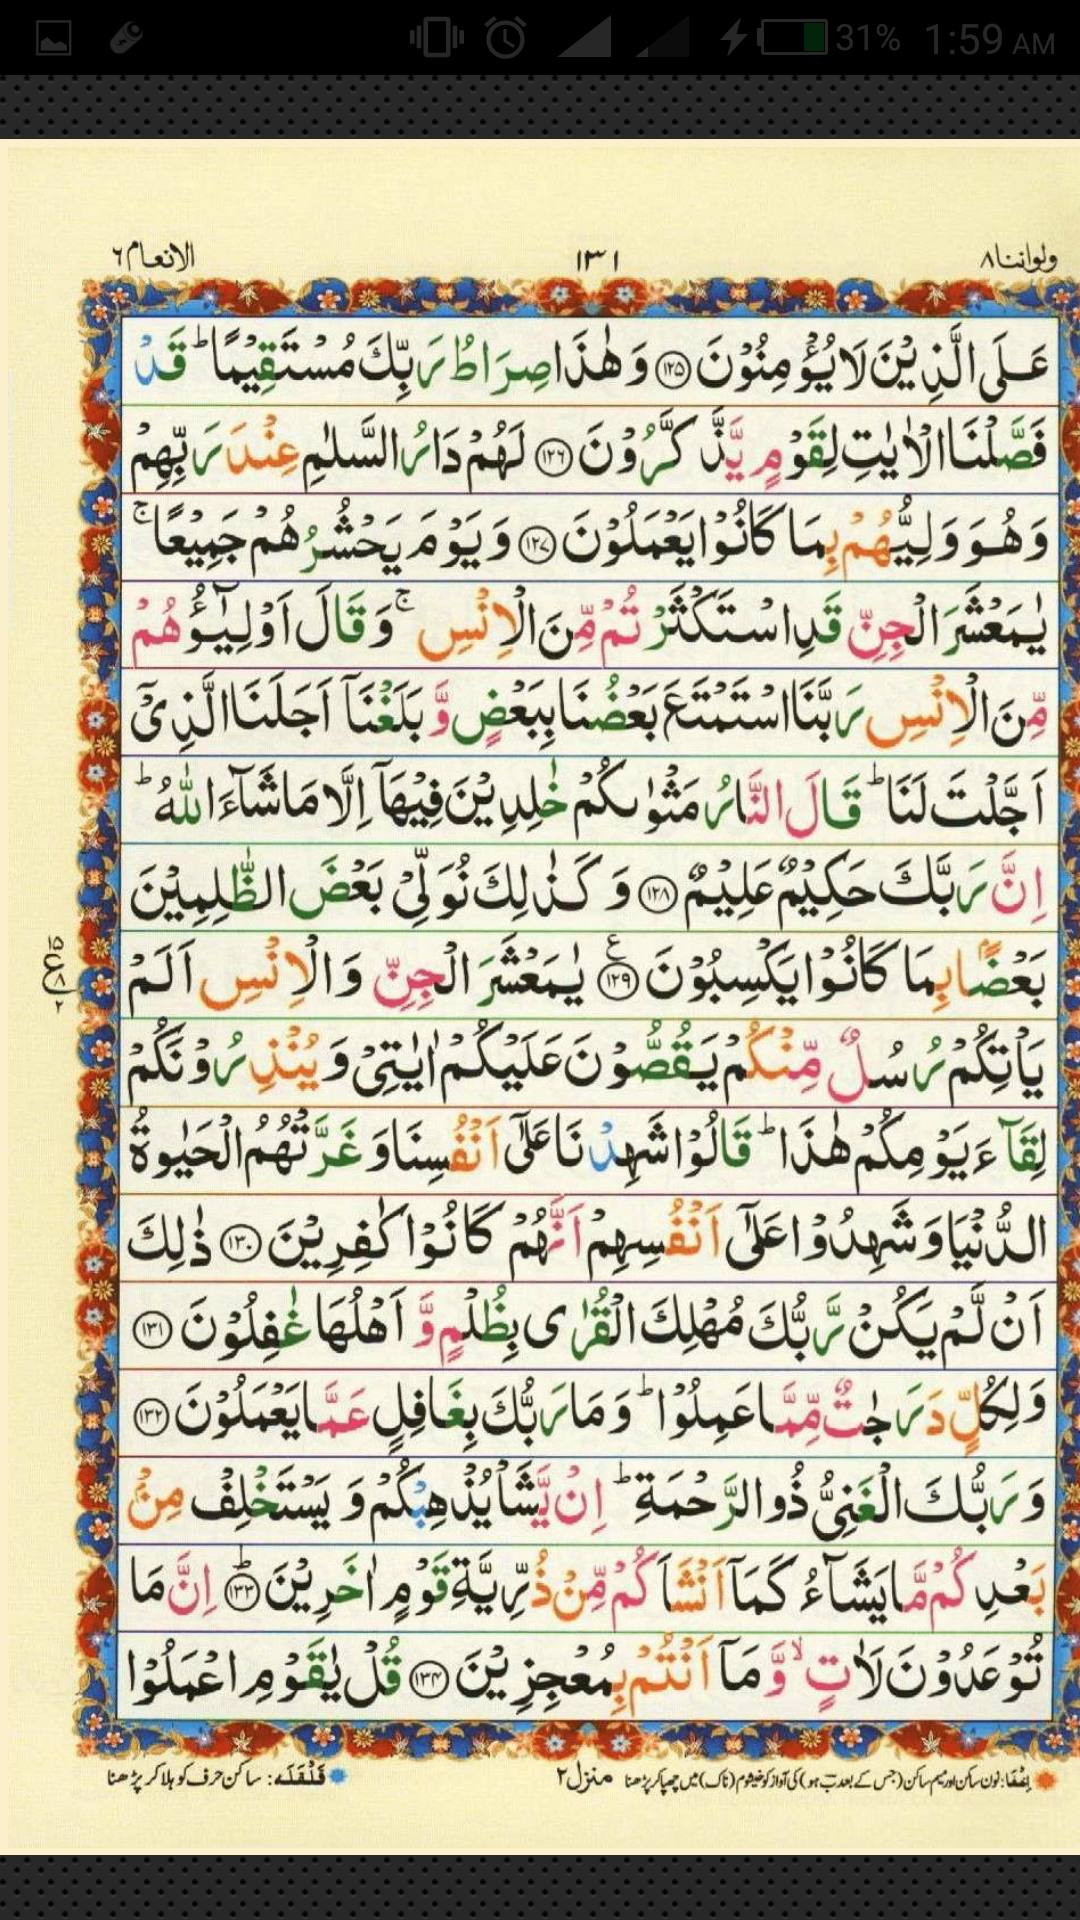 31% 1:59 AM
ولواننا ٨ ١٣١ الانعام ٦
عَلَى الَّذِيْنَ لَا يُؤْمِنُوْنَ ﴿۱۲۵﴾ وَهٰذَا صِرَاطُ رَبِّكَ مُسْتَقِيْمًا ؕ قَدْ
فَصَّلْنَا الْاٰيٰتِ لِقَوْمٍ يَّذَّكَّرُوْنَ ﴿۱۲۶﴾ لَهُمْ دَارُ السَّلٰمِ عِنْدَ رَبِّهِمْ
وَهُوَ وَلِيُّهُمْ بِمَا كَانُوْا يَعْمَلُوْنَ ﴿۱۲۷﴾ وَيَوْمَ يَحْشُرُهُمْ جَمِيْعًا ۚ
يٰمَعْشَرَ الْجِنِّ قَدِ اسْتَكْثَرْتُمْ مِّنَ الْاِنْسِ ۚ وَقَالَ اَوْلِيٰٓؤُهُمْ
مِّنَ الْاِنْسِ رَبَّنَا اسْتَمْتَعَ بَعْضُنَا بِبَعْضٍ وَّبَلَغْنَاۤ اَجَلَنَا الَّذِيْۤ
اَجَّلْتَ لَنَا ؕ قَالَ النَّارُ مَثْوٰىكُمْ خٰلِدِيْنَ فِيْهَاۤ اِلَّا مَا شَآءَ اللّٰهُ ؕ
اِنَّ رَبَّكَ حَكِيْمٌ عَلِيْمٌ ﴿۱۲۸﴾ وَكَذٰلِكَ نُوَلِّيْ بَعْضَ الظّٰلِمِيْنَ
بَعْضًۢا بِمَا كَانُوْا يَكْسِبُوْنَ ﴿۱۲۹﴾ ع يٰمَعْشَرَ الْجِنِّ وَالْاِنْسِ اَلَمْ
١٥ ع ٨ ٢
يَاْتِكُمْ رُسُلٌ مِّنْكُمْ يَقُصُّوْنَ عَلَيْكُمْ اٰيٰتِيْ وَيُنْذِرُوْنَكُمْ
لِقَآءَ يَوْمِكُمْ هٰذَا ؕ قَالُوْا شَهِدْنَا عَلٰۤى اَنْفُسِنَا وَغَرَّتْهُمُ الْحَيٰوةُ
الدُّنْيَا وَشَهِدُوْا عَلٰۤى اَنْفُسِهِمْ اَنَّهُمْ كَانُوْا كٰفِرِيْنَ ﴿۱۳۰﴾ ذٰلِكَ
اَنْ لَّمْ يَكُنْ رَّبُّكَ مُهْلِكَ الْقُرٰى بِظُلْمٍ وَّاَهْلُهَا غٰفِلُوْنَ ﴿۱۳۱﴾
وَلِكُلٍّ دَرَجٰتٌ مِّمَّا عَمِلُوْا ؕ وَمَا رَبُّكَ بِغَافِلٍ عَمَّا يَعْمَلُوْنَ ﴿۱۳۲﴾
وَرَبُّكَ الْغَنِيُّ ذُو الرَّحْمَةِ ؕ اِنْ يَّشَاْ يُذْهِبْكُمْ وَيَسْتَخْلِفْ مِنْۢ
بَعْدِكُمْ مَّا يَشَآءُ كَمَاۤ اَنْشَاَكُمْ مِّنْ ذُرِّيَّةِ قَوْمٍ اٰخَرِيْنَ ﴿۱۳۳﴾ ؕ اِنَّ مَا
تُوْعَدُوْنَ لَاٰتٍ ۙ وَّمَاۤ اَنْتُمْ بِمُعْجِزِيْنَ ﴿۱۳۴﴾ قُلْ يٰقَوْمِ اعْمَلُوْا
اِخفَا: نون ساکن اور میم ساکن (جس کے بعد ب ہو) کی آواز کو خیشوم (ناک) میں چھپا کر پڑھنا منزل ۲ قَلْقَلَه: ساکن حرف کو ہلا کر پڑھنا